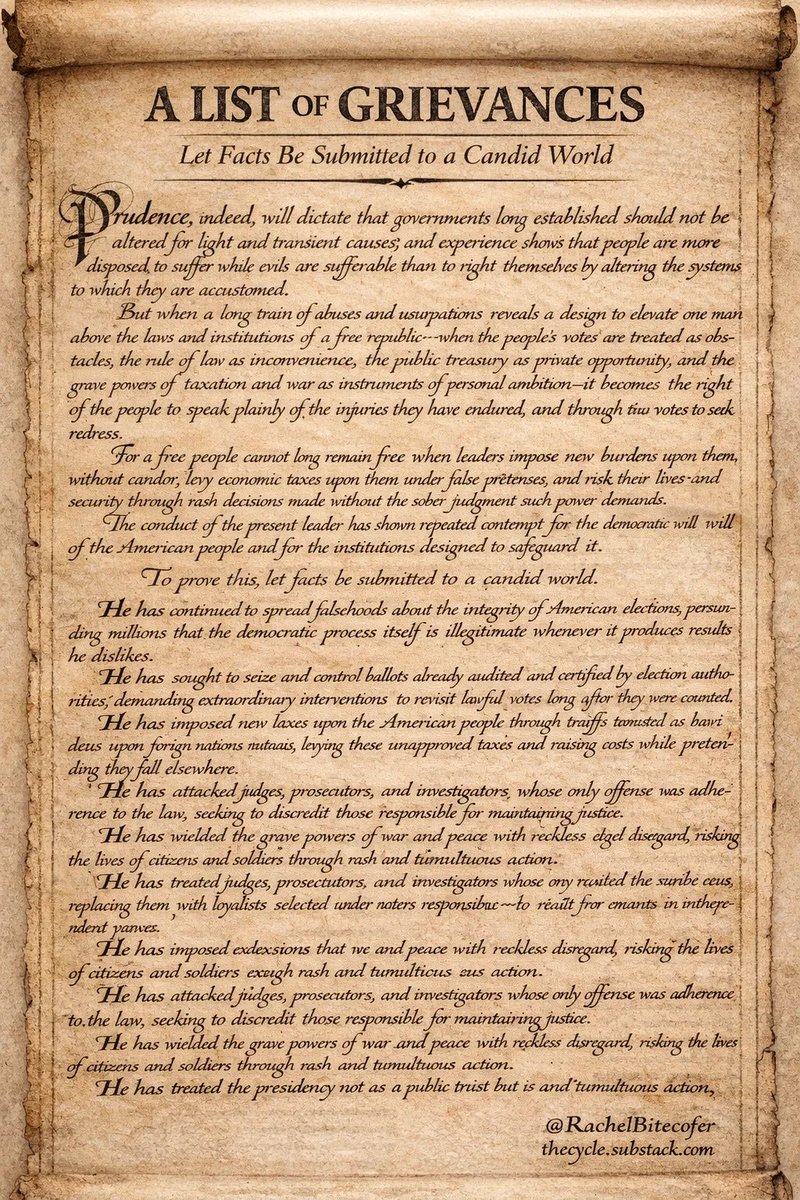 A LIST OF GRIEVANCES
Let Facts Be Submitted to a Candid World
Prudence, indeed, will dictate that governments long established should not be
altered for light and transient causes; and experience shows that people are more
disposed, to suffer while evils are sufferable than to right themselves by altering the systems
to which they are accustomed.
But when a long train of abuses and usurpations reveals a design to elevate one man
above the laws and institutions of a free republic--when the people's votes are treated as obs-
tacles, the rule of law as inconvenience, the public treasury as private opportunity, and the
grave powers of taxation and war as instruments of personal ambition—it becomes the right
of the people to speak plainly of the injuries they have endured, and through votes to seek
redress.
For a free people cannot long remain free when leaders impose new burdens upon them,
without candor, levy economic taxes upon them under false pretenses, and risk their lives-and
security through rash decisions made without the sober judgment such power demands.
The conduct of the present leader has shown repeated contempt for the democratic will will
of the American people and for the institutions designed to safeguard it.
To prove this, let facts be submitted to a candid world.
He has continued to spread falsehoods about the integrity of American elections, persun-
ding millions that the democratic process itself is illegitimate whenever it produces results
he dislikes.
He has sought to seize and control ballots already audited and certified by election autho-
rities, demanding extraordinary interventions to revisit lawful votes long after they were counted.
He has imposed new taxes upon the American people through as
deus upon forign nations levying these unapproved taxes and raising costs while preten-
ding they fall elsewhere.
He has attacked judges, prosecutors, and investigators, whose only offense was adhe-
rence to the law, seeking to discredit those responsible for maintaining justice.
He has wielded the grave powers of war and peace with reckless disegard, risking
the lives of citizens and soldiers through rash and tumultuous action.
He has treated judges, prosectutors, and investigators whose ony the
replacing them with loyalists selected under in
ndent
He has imposed that and peace with reckless disregard, risking the lives
of citizens and soldiers rash and action.
He has attacked judges, prosecutors, and investigators whose only offense was adherence
to. the law, seeking to discredit those responsible for maintaining justice.
He has wielded the grave powers of war and peace with reckless disregard, risking the lives
of citizens and soldiers through rash and tumultuous action.
He has treated the presidency not as a public trust but is and tumultuous action,
@RachelBitecofer
thecycle.substack.com